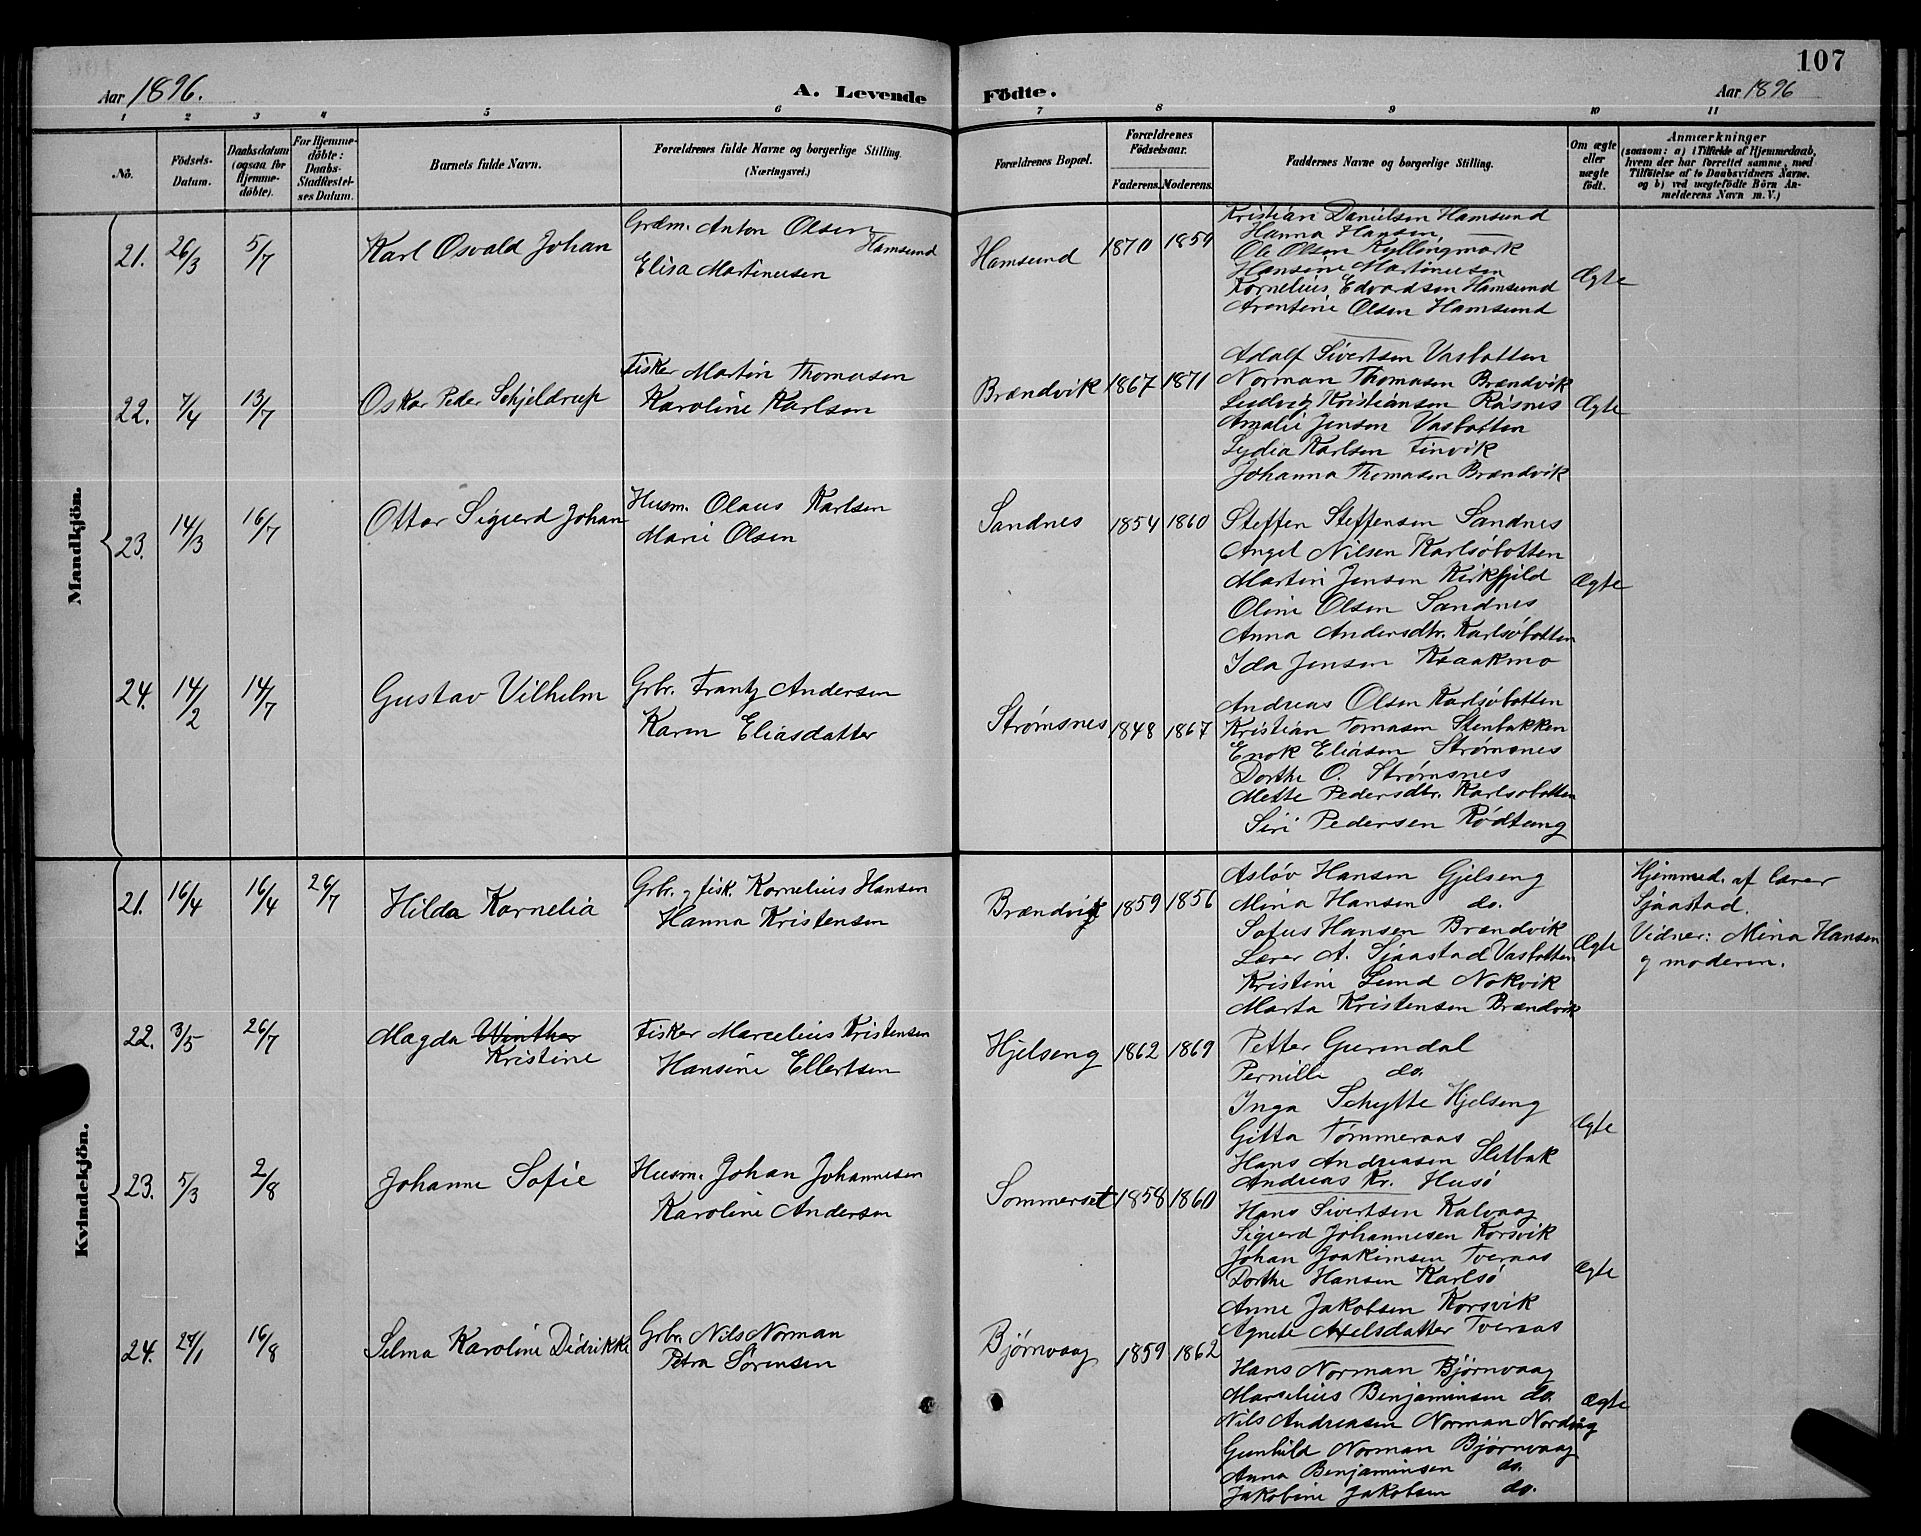 107
Aar 1896.
A. Levende Födte.
Aar 1896
1 2 3 4 5 6 7 8 9 10 11
No.
Födsels-Datum.
Daabsdatum (ogsaa for Hjemme-döbte).
For Hjemme-döbte: Daabs-Stadfæstel-ses Datum.
Barnets fulde Navn.
Forældrenes fulde Navne og borgerlige Stilling. (Næringsvei.)
Forældrenes Bopæl.
Forældrenes Födselsaar.
Faderens. Moderens.
Faddernes Navne og borgerlige Stilling.
Om ægte eller uægte födt.
Anmærkninger
(saasom: a) i Tilfælde af Hjemmedaab, hvem der har forrettet samme, med Tilföielse af to Daabsvidners Navne. og b) ved uægtefödte Börn An-melderens Navn m. V.)
Mandkjön.
21. 26/3 5/7 Karl Osvald Johan
Grdm. Anton Olsen Hamsund
Elisa Martinussen
Hamsund 1870 1859
Kristian Danielsen Hamsund
Hanna Hansen —
Ole Olsen Kyllingmark
Hansine Martinusen
Kornelius Edvardsen Hamsund
Arentine Olsen Hamsund
Ægte
22. 7/4 13/7 Oskar Peder Schjeldrup
Fisker Martin Thomasen
Karoline Karlsen
Brændvik 1867 1871
Adolf Sivertsen Vasbotten
Norman Thomasen Brændvik
Ludvig Kristiansen Räsnes
Amalie Jensen Vasbotten
Lydia Karlsen Finvik
Johanna Thomasen Brændvik
Ægte
23. 14/3 16/7 Ottar Sigurd Johan
Husm. Olaus Karlsen
Marie Olsen
Sandnes 1854 1860
Steffen Steffensen Sandnes
Angel Nilsen Karlsöbotten
Martin Jensen Kirkfjeld
Oline Olsen Sandnes
Anna Andersdtr. Karlsöbotten
Ida Jensen Kraakmo
Ægte
24. 14/2 14/7 Gustav Vilhelm
Grbr. Frantz Andersen
Karen Eliasdatter
Strømsnes 1848 1867
Andreas Olsen Karlsöbotten
Kristian Tomasen Stenbakken
Enok Eliasen Strømsnes
Dorthe O. Strømsnes
Mette Pedersdtr. Karlsobotten
Siri Pedersen Rödtung
Kvindekjön.
21. 16/4 16/4 26/7 Hilda Kornelia
Grbr. g fisk. Kornelius Hansen
Hanna Kristensen
Brændvik 1859 1856
Asløv Hansen Gjelseng
Mina Hansen do.
Sofus Hansen Brændvik
Lærer A. Sjaastad Vasbotten
Kristine Lund Nokvik
Marta Kristensen Brændvik
Ægte
Hjemmed. af lærer
Sjaastad.
Vidner: Mina Hansen
g moderen.
22. 3/5 26/7 Magda Winther
Kristine
Fisker Marcelius Kristensen
Hansine Ellertsen
Hjelseng 1862 1869
Petter Gurendal
Pernille do.
Inga Schytte Hjelseng
Gitta Tømmeraas
Hans Andreasen Sletbak
Andreas Kr. Husö
Ægte
23. 5/3 2/8 Johanne Sofie
Husm. Johan Johannesen
Karoline Andersen
Sommerset 1858 1860
Hans Sivertsen Kalvaag
Sigurd Johannesen Korsvik
Johan Joakimsen Tveraas
Dorthe Hansen Karlsö
Anne Jakobsen Korsvik
Agnete Axelsdatter Tveraas
Ægte
24. 24/1 16/8 Selma Karoline Didrikke
Grbr. Nils Norman
Petra Sørensen
Bjørnvaag 1859 1862
Hans Norman Bjørnvaag
Marselius Benjaminsen do.
Nils Andreasen Norman Nordvåg
Gunhild Norman Bjørnvaag
Anna Benjaminsen do.
Jakobine Jakobsen do.
Ægte